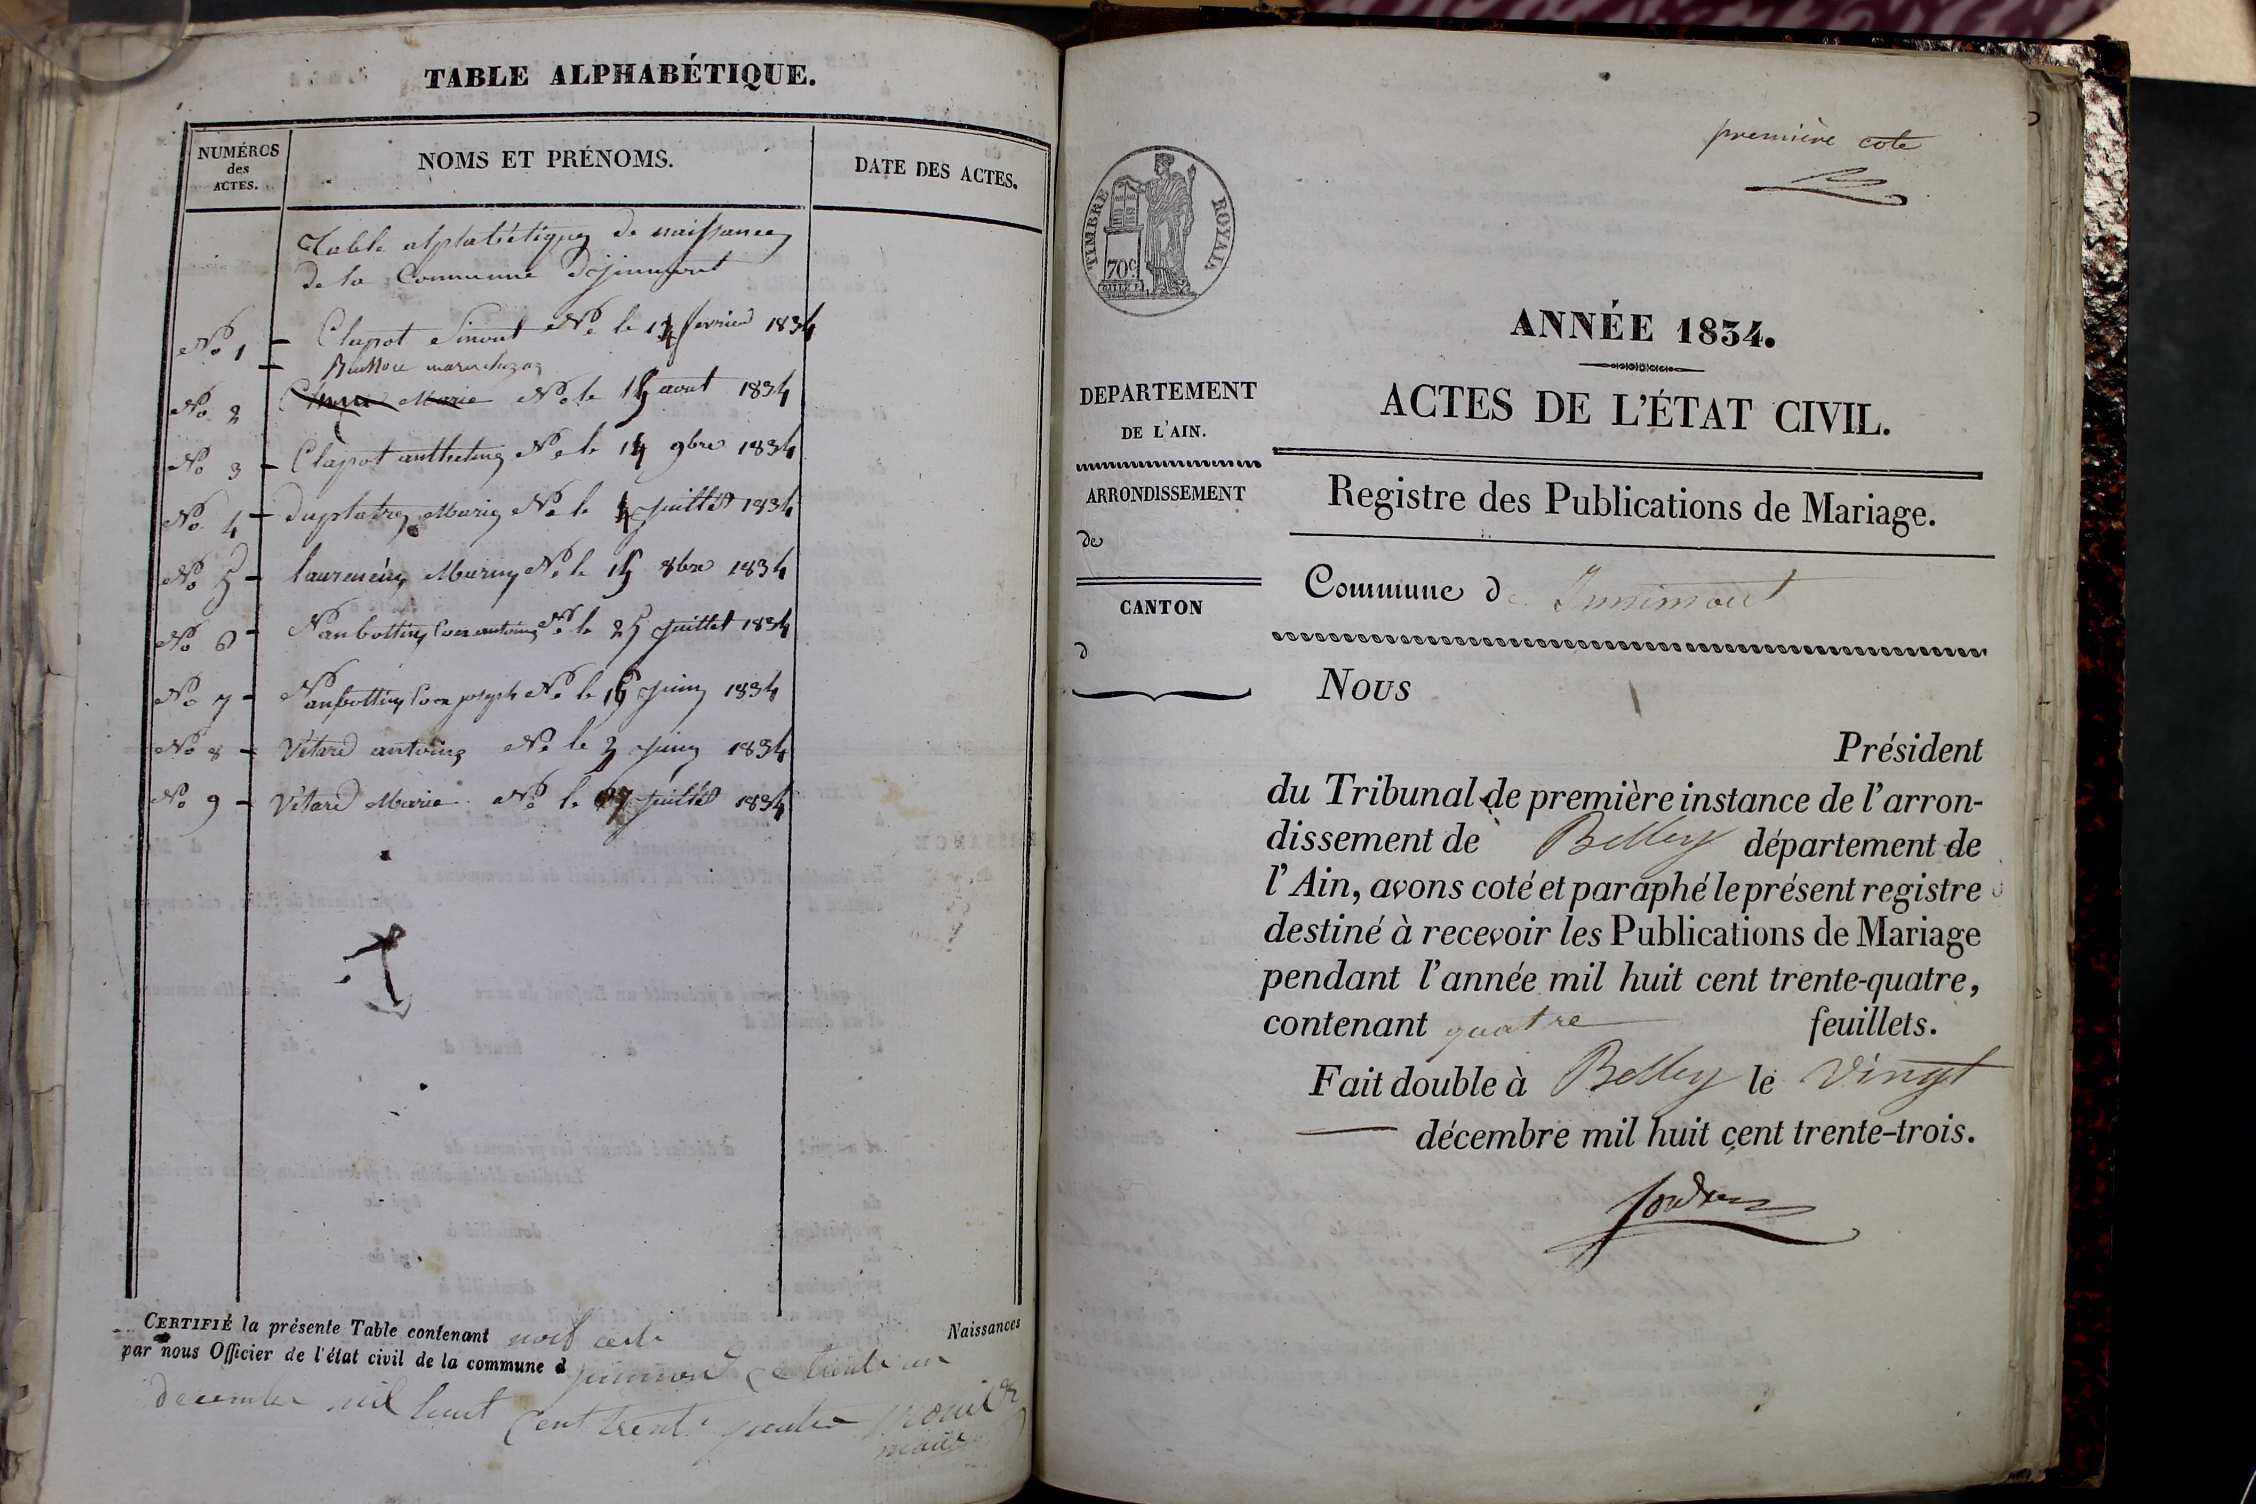 TABLE ALPHABÉTIQUE.
NUMÉROS
des
ACTES.
NOMS ET PRÉNOMS.
DATE DES ACTES.
Table alphabétique de naissance
de la Commune
No 1 - Clapot Né le 14 fevrier 1834
No 2 Marie Né le 15 aout 1834
No 3 - Clapot Né le 14 9bre 1834
No 4 - Duplatre Marie Né le 4 juillet 1834
No 5 - Né le 15 8bre 1834
No 6 - Né le 25 juillet 1834
No 7 - joseph Né le 15 juin 1834
No 8 - Vétard antoine Né le juin 1834
No 9 - Vétard Marie Né le juillet 1834
CERTIFIÉ la présente Table contenant Naissances
par nous Officier de l'état civil de la commune d
décembre mil huit cent trente quatre
première cote
TIMBRE ROYAL
70c
ANNÉE 1834.
ACTES DE L'ÉTAT CIVIL.
DEPARTEMENT
DE L'AIN.
ARRONDISSEMENT
de
CANTON
d
Registre des Publications de Mariage.
Commune d Innimont
Nous
Président
du Tribunal de première instance de l'arron-
dissement de Belley département de
l'Ain, avons coté et paraphé le présent registre
destiné à recevoir les Publications de Mariage
pendant l'année mil huit cent trente-quatre,
contenant quatre feuillets.
Fait double à Belley le vingt
décembre mil huit cent trente-trois.